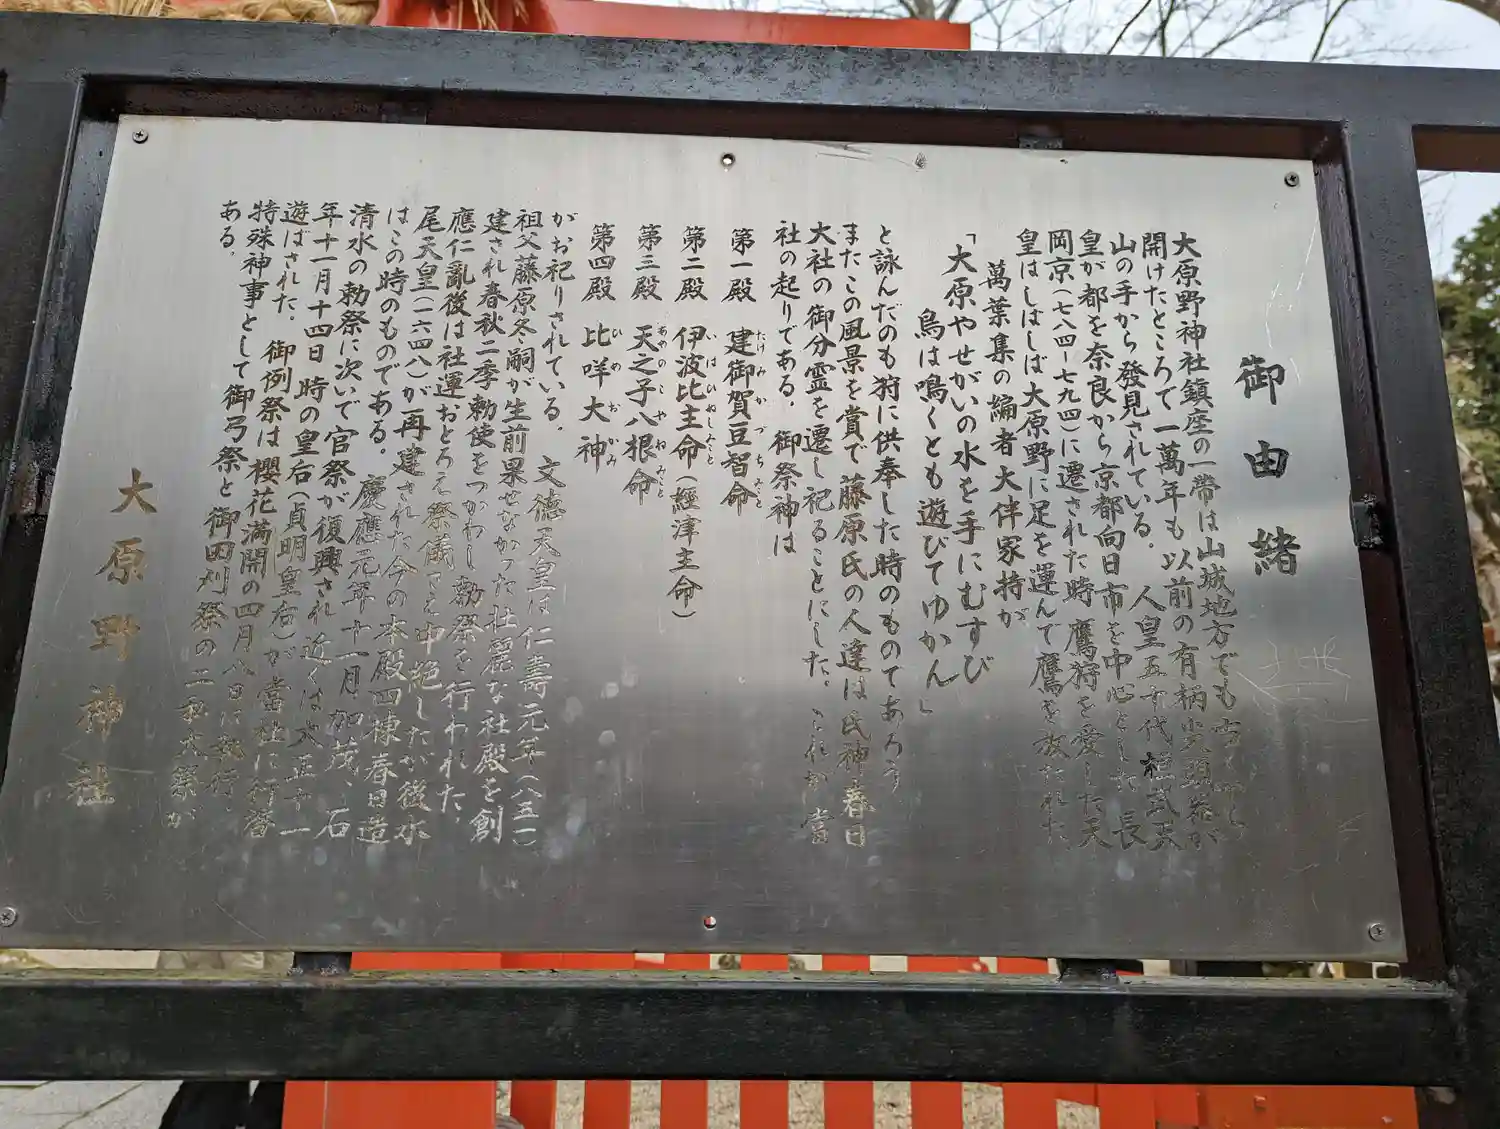 御由緒
大原野神社鎮座の一帯は山城地方でも
開けたところで一萬年も以前の有柄尖頭器が
山の手から發見されている．人皇五十代 桓武天
皇が都を奈良から京都向日市を中心とした 長
岡京(七八四−七九四)に遷された時 鷹狩を愛した天
皇はしばしば大原野に足を運んで鷹を放たれた
萬葉集の編者大伴家持が
「大原やせがいの水を手にむすび
鳥は鳴くとも遊びてゆかん」
と詠んだのも狩に供奉した時のものてあろう
またこの風景を賞で藤原氏の人達は氏神春日
大社の御分霊を遷し祀ることにした．これが當
社の起りである．御祭神は
第一殿 建御賀豆智命
たけみかづちみこと
第二殿 伊波比主命(經津主命)
いはひぬしみこと
第三殿 天之子八根命
あめのこやねみこと
第四殿 比咩大神
ひめおおかみ
がお祀りされている． 文徳天皇は仁壽元年(八五一)
祖父藤原冬嗣が生前果せなかった壮麗な社殿を創
建され春秋二季勅使をつかわし勅祭を行われた．
應仁亂後は社運おとろえ祭儀さえ中絶したが後水
尾天皇(一六四八)が再建された今の本殿四棟春日造
はこの時のものである．慶應元年十一月 加茂、石
清水の勅祭に次いで官祭が復興され 近くは大正十一
年十一月十四日 時の皇后(貞明皇后)が當社に行啓
遊ばされた．御例祭は櫻花満開の四月八日に執行．
特殊神事として御弓祭と御田刈祭の二大祭が
ある．
大原野神社